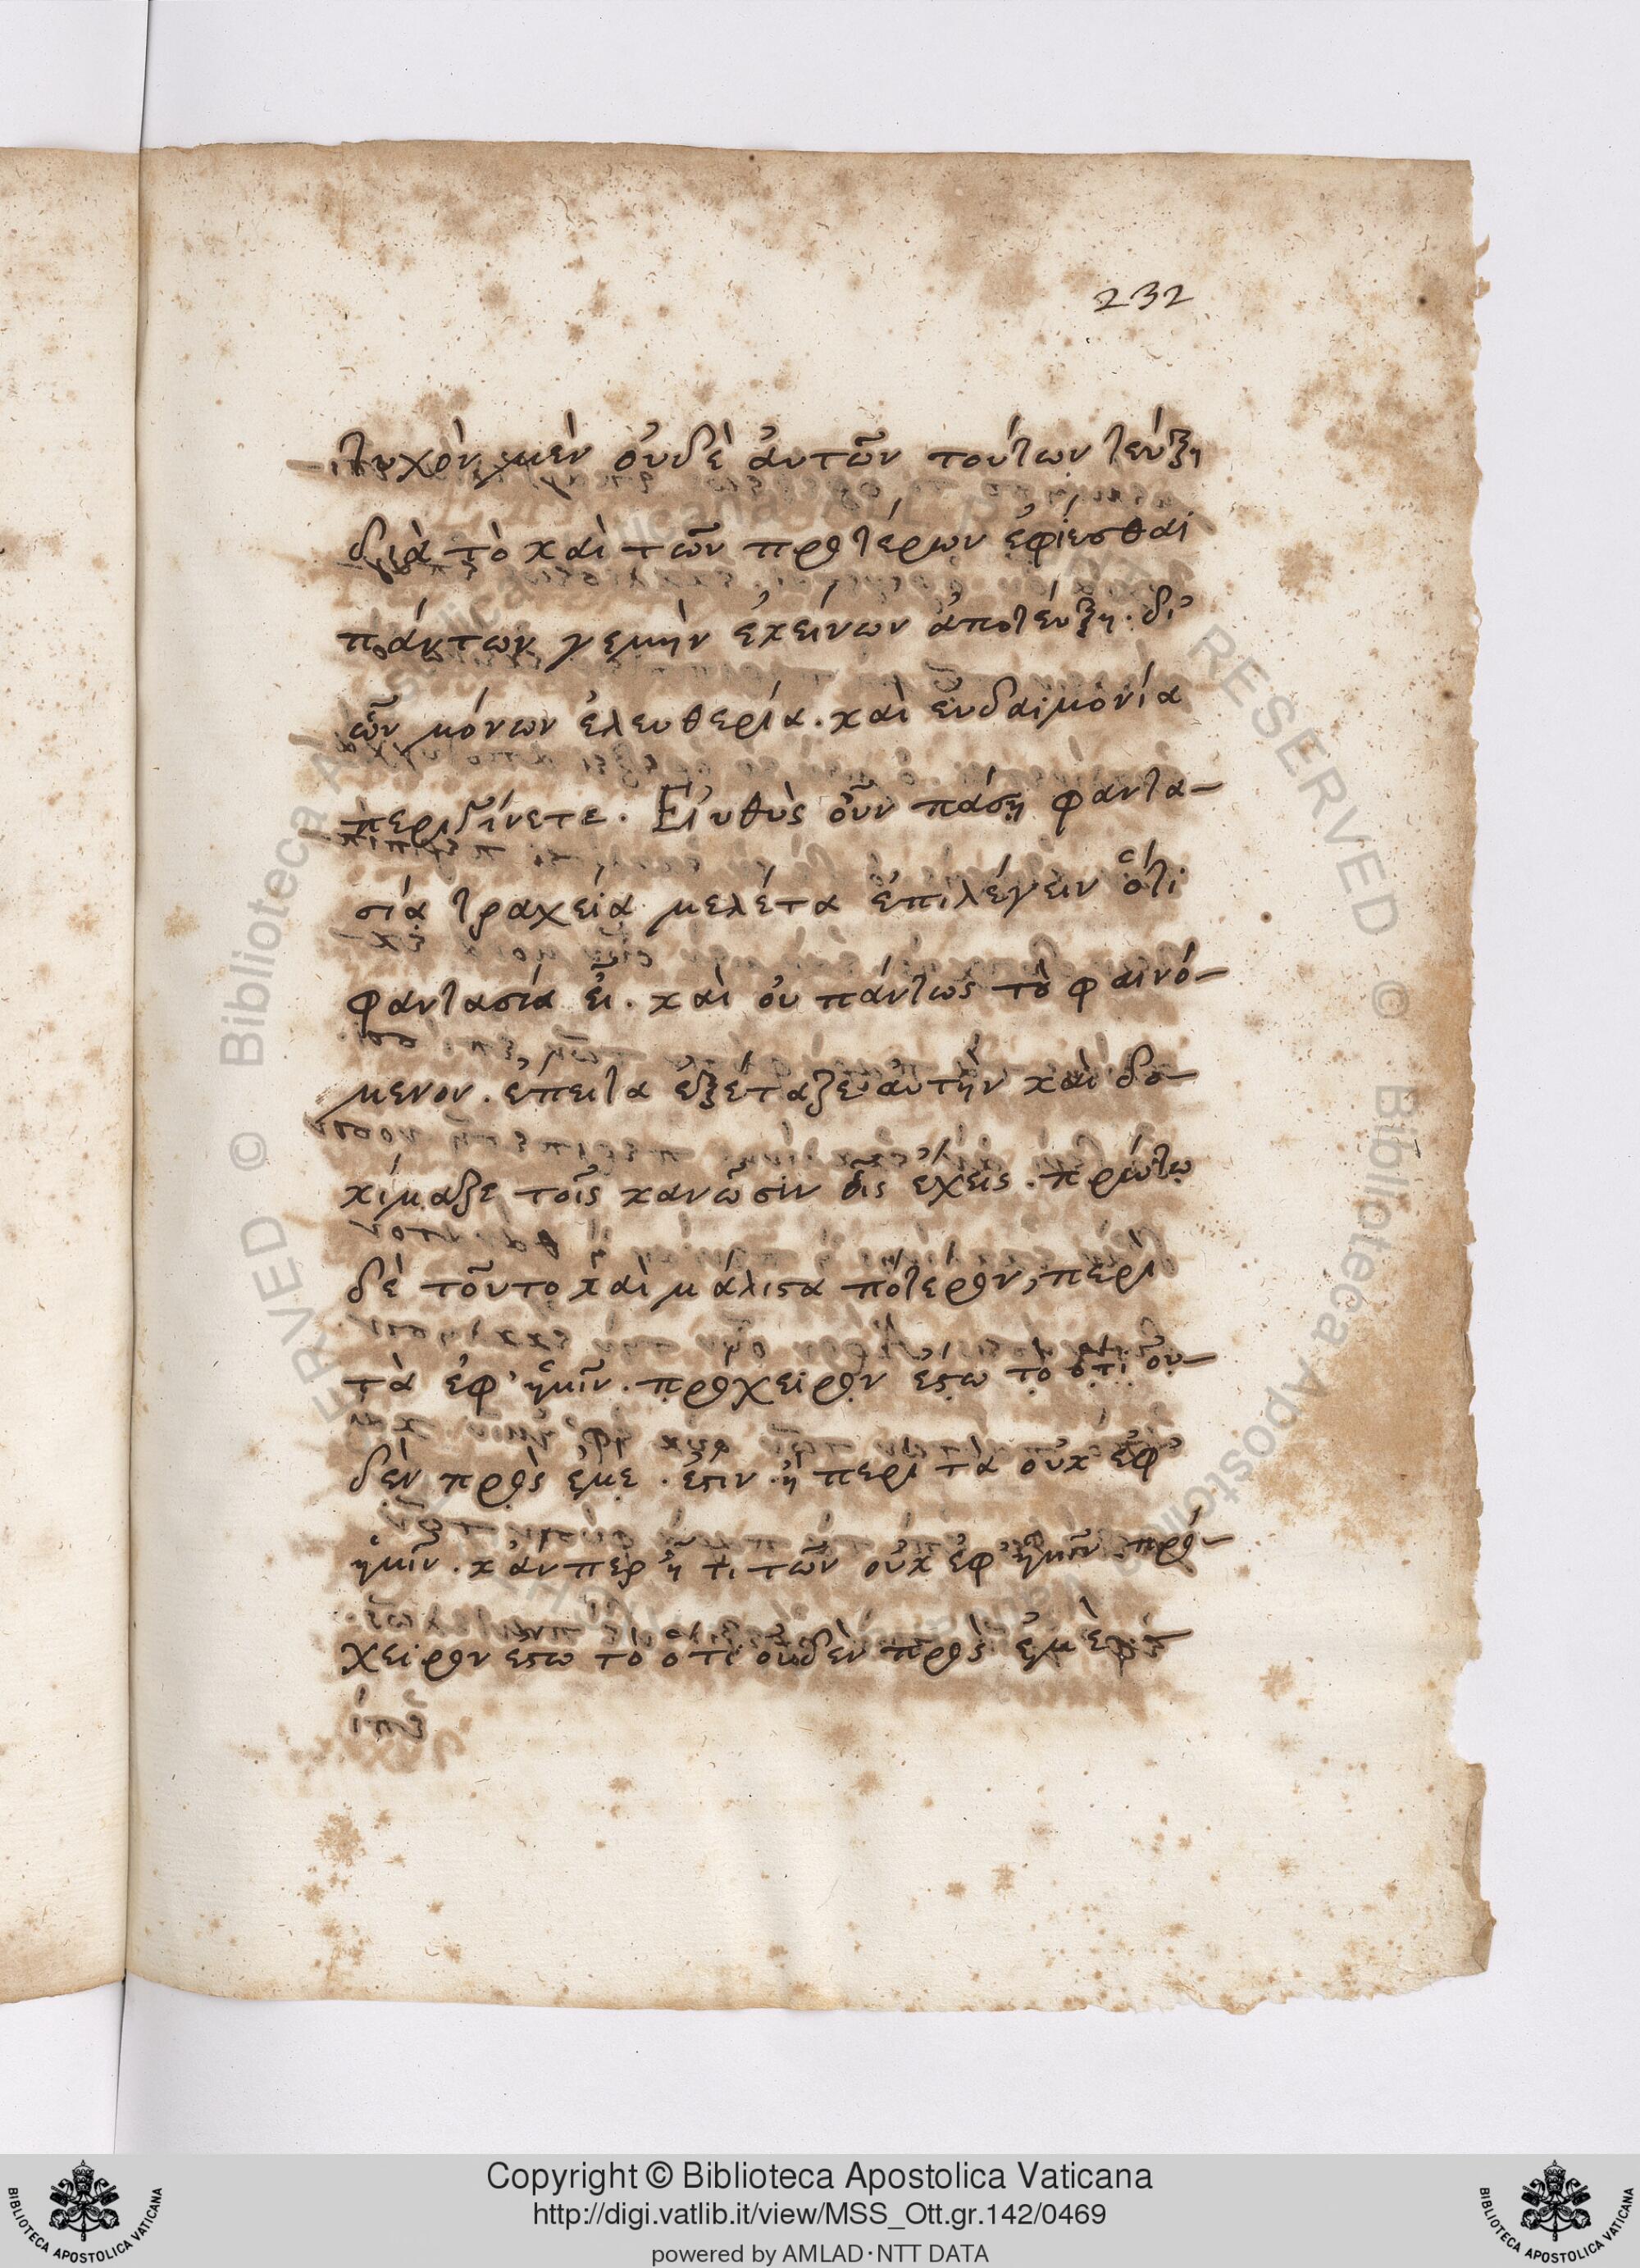 232
τυχὸν μὲν ὀυδὲ ἀυτῶν τούτων τεύξη
διὰ τὸ καὶ τῶν προτέρων ἐφίεσθαι
πάντων γεμὴν ἐκείνων ἀποτεύξη. δι᾽
ὧν μόνων ἐλευθερία. καὶ ἐυδαιμονία
περιγίνετε. Ἐυθὺς οὖν πάση φαντα-
σία τραχεία μελέτα ἐπιλέγειν ὅτι
φαντασία εἶ. καὶ ὀυ πάντως τὸ φαινό-
μενον. ἔπειτα ἐξέταζε ἀυτὴν καὶ δο-
κίμαζε τοῖς κανῶσιν οἷς ἔχεις. πρώτω
δὲ τοῦτο καὶ μάλιστα πότερον, περὶ
τὰ ἐφ᾽ ἡμῖν. προχειρον ἔστω τὸ ὅτι ὀυ-
δὲν πρὸς ἐμὲ. ἐστιν. ἢ περὶ τὰ ὀυκ ἐφ᾽
ἡμῖν. κἄνπερ ἢ τι τῶν ὀυκ ἐφ᾽ ἡμῖν πρό-
χειρον εστω τὸ ὅτι ὀυδὲν πρὸς ἐμὲ
Copyright © Biblioteca Apostolica Vaticana
http://digi.vatlib.it/view/MSS_Ott.gr.142/0469
powered by AMLAD·NTT DATA
BIBLIOTECA APOSTOLICA VATICANA
BIBLIOTECA APOSTOLICA VATICANA